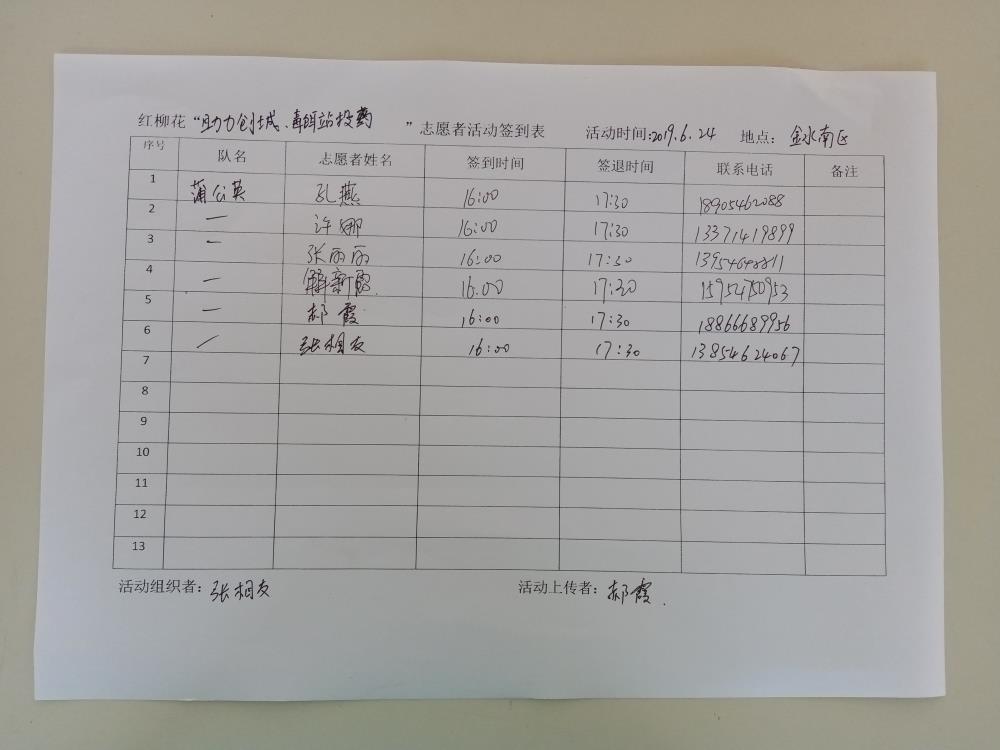 红柳花“助力创城、毒饵站投药”志愿者活动签到表 活动时间:2019.6.24 地点: 金水南区
序号 队名 志愿者姓名 签到时间 签退时间 联系电话 备注
1 蒲公英 孔燕 16:00 17:30 18905462088
2 — 许娜 16:00 17:30 13371419899
3 — 张丽丽 16:00 17:30
4 — 解新 16:00 17:30 15954750953
5 — 郝霞 16:00 17:30 18866689956
6 — 张相友 16:00 17:30 13854624067
7
8
9
10
11
12
13
活动组织者: 张相友 活动上传者: 郝霞.